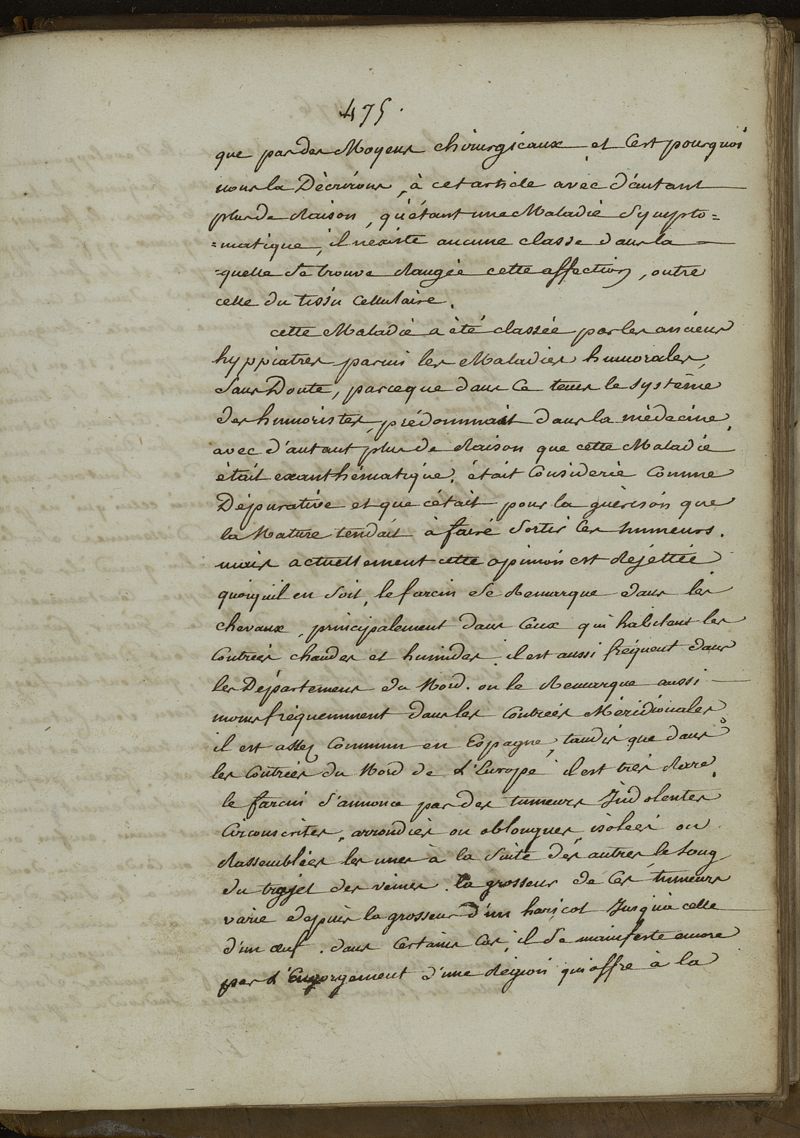 475.
que par des Moyens chirurgicaux et C'est pourquoi
nous la Décrivons, à cet article avec d'autant
plus de Raison, qu'étant une Maladie Sympto=
=matique, il n'existe aucune classe dans la
quelle Se trouve Rangée cette affection, outre
celle du tissu cellulaire.
cette Maladie a été classée par les anciens
hyppiatres parmi les Maladies humorales,
Sans Doute, parceque dans Ce tems le système
des humoristes, prédominait dans la médecine,
avec d'autant plus de Raison que cette Maladie
était exanthématique, était Considerée Comme
Dépurative et que c'était pour la guèrison que
la Nature tendait à faire Sortir les humeurs.
mais actuellement cette opinion est Rejettée
quoiqu'il en Soit, le farcin Se Remarque dans les
chevaux, principalement dans Ceux qui habitent les
Contrées chaudes et humides, il est aussi fréquent dans
les Départemens du Nord. on le Remarque aussi
moins fréquemment dans les Contrées Méridionales
il est assez Commun en Espagne, tandis que dans
les Contrées du Nord de L'Europe il est très Rare.
le farcin S'annonce par des tumeurs Indolentes
Circonscrites, arrondies ou oblongues, isolées ou
Rassemblées les unes à la Suite des autres le long
du trajet des veines. la grosseur de Ces tumeurs
varie depuis la grosseur d'un haricot Jusqu'a celle
d'un œuf. dans Certains Cas, il Se manifeste encore
par L'Engorgement d'une Région qui offre à la